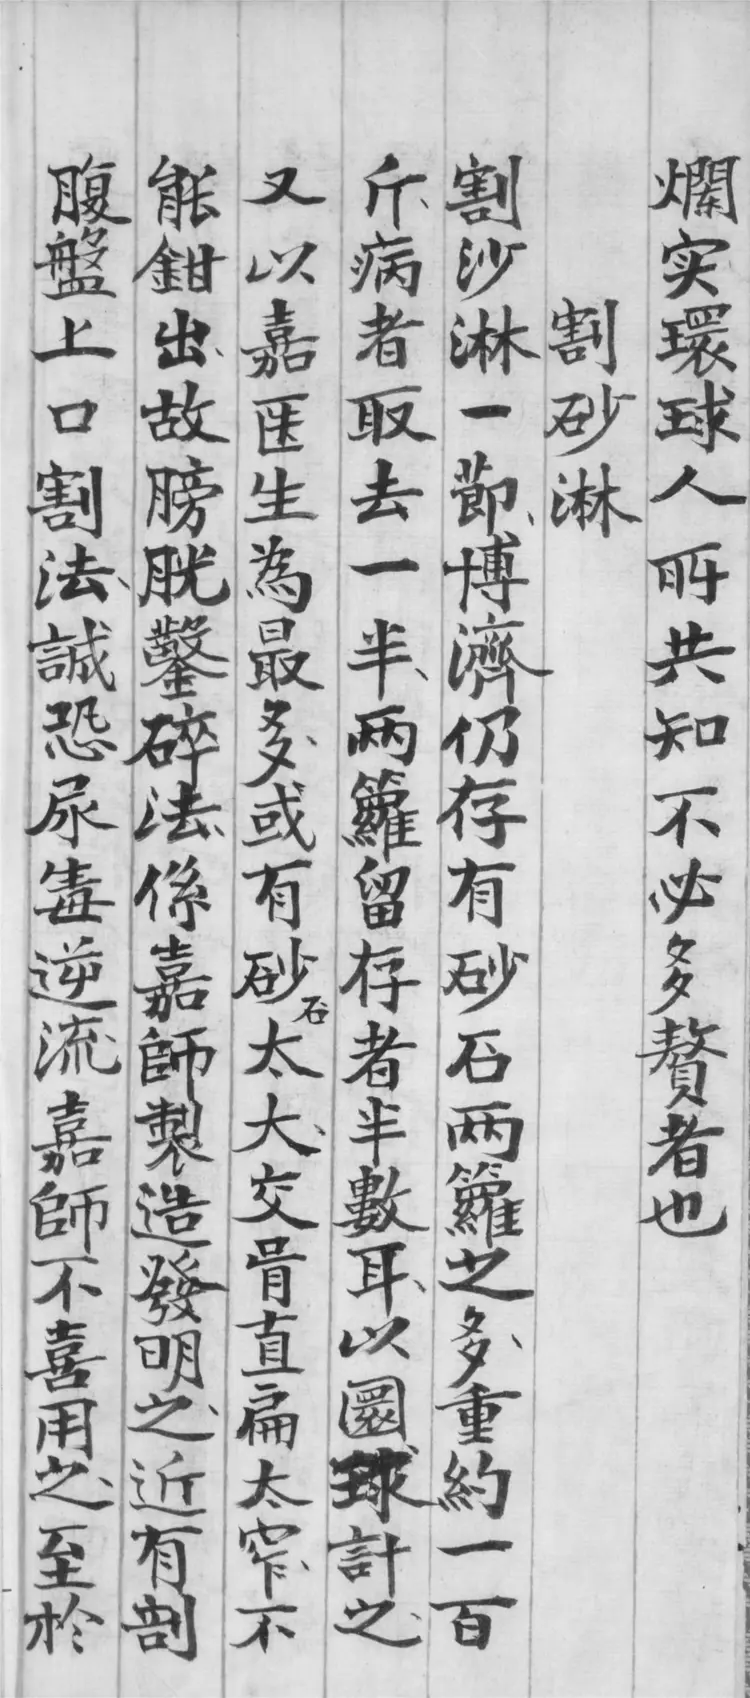 爛实環球人所共知不必多贅者也
割砂淋
割沙淋一節、博濟仍存有砂石两籮之多、重約一百
斤、病者取去一半、两籮留存者半數耳、以圜球計之、
又以嘉医生為最多、或有砂石太大、交骨直扁太窄、不
能鉗出、故膀胱鑿碎法、係嘉師製造發明之、近有剖
腹盤上口割法、誠恐尿毒逆流、嘉師不喜用之、至於